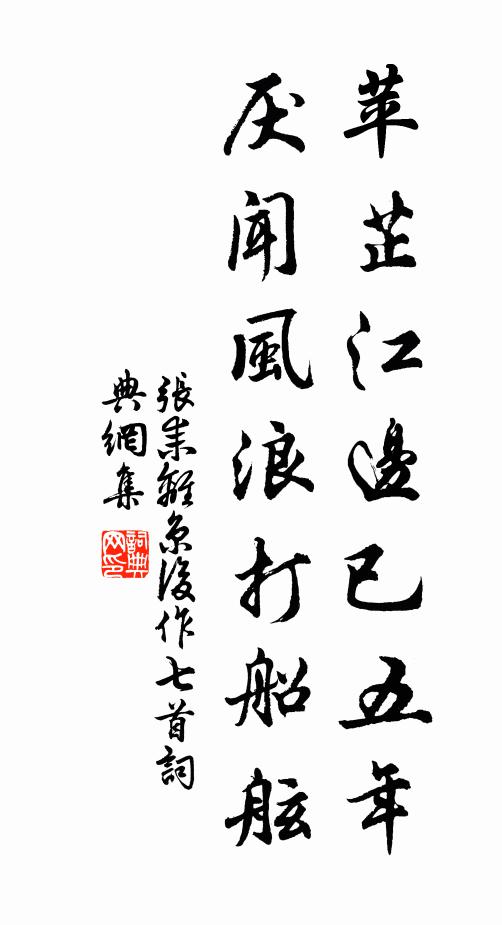 苹芷江邊已五年
厌聞風浪打船舷
張耒離京後作七首詞
典網集
詞典网印